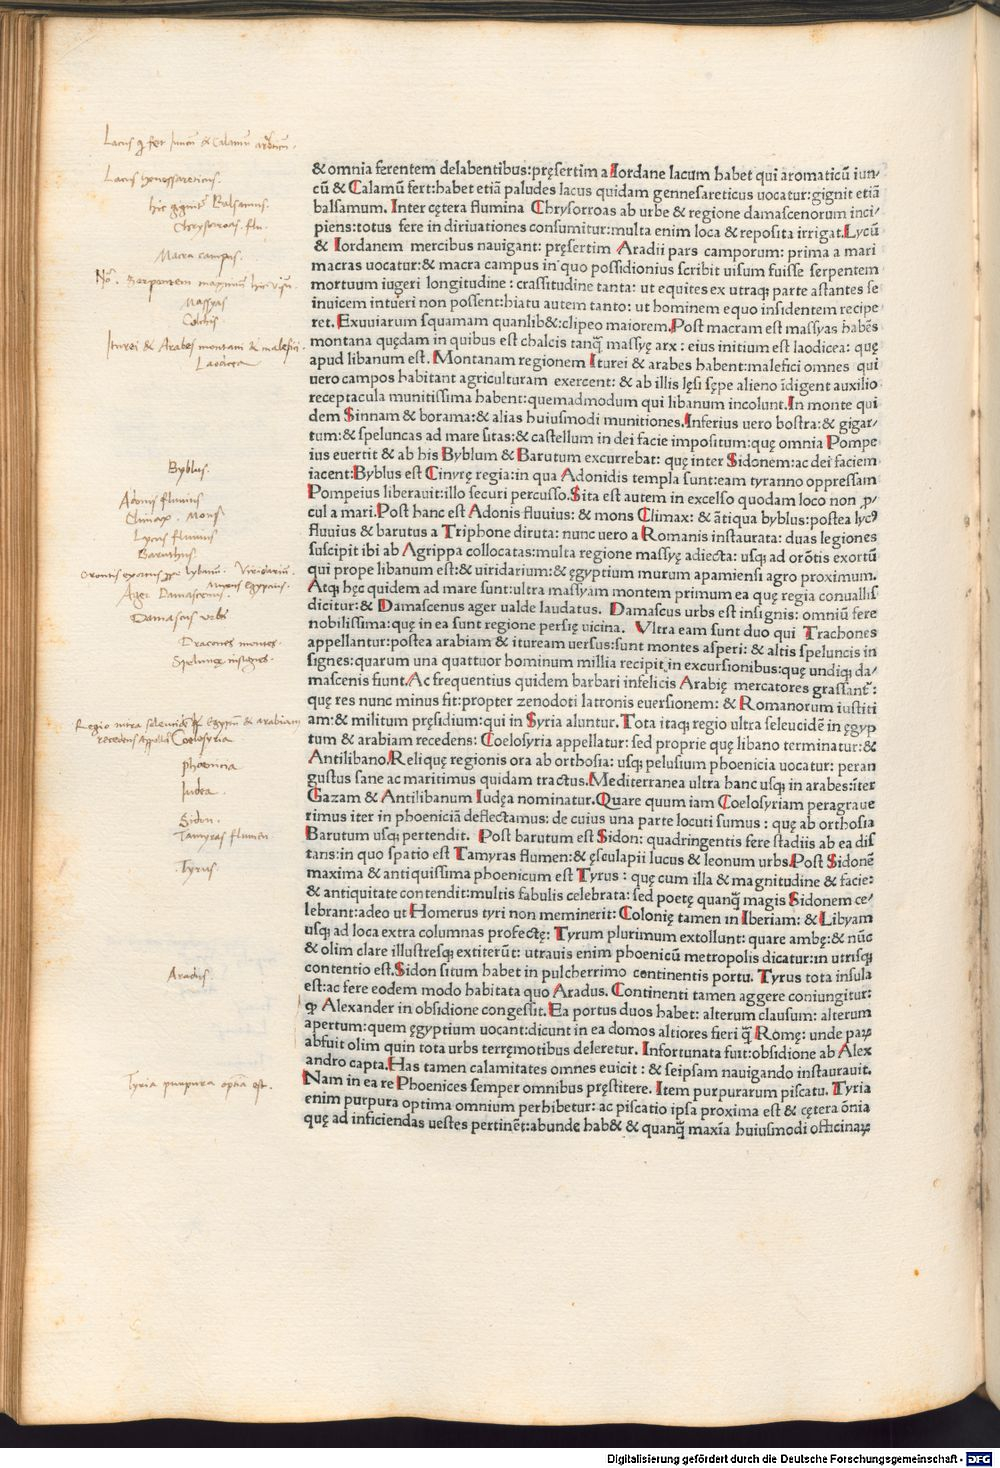 Lacus q̄ fert Juncū & Calamū arōticū.
Lacus gennessareticus.
hic gignit' Balsamus.
Chrysorroas. flu.
Macra campus.
Massyas
Colchis
Iturei & Arabes montani & malefici.
Laodicea
Byblus.
Adonis fluvius
Climax. Mons
Lycus fluvius
Baruthus
Ager Damascenus.
Damascus urbs
Dracones montes.
Speluncę insignes.
Coelosyria
phoenicia
Judea.
Sidon.
Tamyras flumen
Tyrus.
Aradus.
Tyria purpura optīa est.
& omnia ferentem delabentibus:pręsertim a Iordane lacum habet qui aromaticū iun/
cū & Calamū fert:habet etiā paludes lacus quidam gennesareticus uocatur:gignit etiā
balsamum. Inter cętera flumina Chrysorroas ab urbe & regione damascenorum inci/
piens:totus fere in diriuationes consumitur:multa enim loca & reposita irrigat.Lycū
& Iordanem mercibus nauigant: pręsertim Aradii pars camporum: prima a mari
macras uocatur:& macra campus in quo possidionius scribit uisum fuisse serpentem
mortuum iugeri longitudine : crassitudine tanta: ut equites ex utraq; parte astantes se
inuicem intueri non possent:hiatu autem tanto: ut hominem equo insidentem recipe
ret. Exuuiarum squamam quanlib&:clipeo maiorem.Post macram est massyas habēs
montana quędam in quibus est chalcis tanq̄ massyę arx : eius initium est laodicea: quę
apud libanum est. Montanam regionem Iturei & arabes habent:malefici omnes qui
uero campos habitant agriculturam exercent: & ab illis lęsi sępe alieno īdigent auxilio
receptacula munitissima habent:quemadmodum qui libanum incolunt.In monte qui
dem Sinnam & borama:& alias huiusmodi munitiones.Inferius uero bostra:& gigar/
tum:& speluncas ad mare sitas:& castellum in dei facie impositum:quę omnia Pompe
ius euertit & ab his Byblum & Barutum excurrebat: quę inter Sidonem:ac dei faciem
iacent:Byblus est Cinyrę regia:in qua Adonidis templa sunt:eam tyranno oppressam
Pompeius liberauit:illo securi percusso.Sita est autem in excelso quodam loco non ꝓ/
cul a mari.Post hanc est Adonis fluuius: & mons Climax: & ātiqua byblus:postea lycꝰ
fluuius & barutus a Triphone diruta: nunc uero a Romanis instaurata: duas legiones
suscipit ibi ab Agrippa collocatas:multa regione massyę adiecta: usq; ad orōtis exortū
qui prope libanum est:& uiridarium:& ęgyptium murum apamiensi agro proximum.
Atq; hęc quidem ad mare sunt:ultra massyam montem primum ea quę regia conuallis
dicitur:& Damascenus ager ualde laudatus. Damascus urbs est insignis: omniū fere
nobilissima:quę in ea sunt regione persię uicina. Vltra eam sunt duo qui Trachones
appellantur:postea arabiam & ituream uersus:sunt montes asperi: & altis speluncis in
signes:quarum una quattuor hominum millia recipit in excursionibus:quę undiq; da/
mascenis fiunt.Ac frequentius quidem barbari infelicis Arabię mercatores grassant':
quę res nunc minus fit:propter zenodoti latronis euersionem: & Romanorum iustiti
am:& militum pręsidium:qui in Syria aluntur. Tota itaq; regio ultra seleucidē in ęgyp
tum & arabiam recedens: Coelosyria appellatur: sed proprie quę libano terminatur:&
Antilibano.Reliquę regionis ora ab orthosia: usq; pelusium phoenicia uocatur: peran
gustus sane ac maritimus quidam tractus.Mediterranea ultra hanc usq; in arabes:īter
Gazam & Antilibanum Iudęa nominatur.Quare quum iam Coelosyriam peragraue
rimus iter in phoeniciā deflectamus: de cuius una parte locuti sumus : quę ab orthosia
Barutum usq; pertendit. Post barutum est Sidon: quadringentis fere stadiis ab ea dis
tans:in quo spatio est Tamyras flumen:& ęsculapii lucus & leonum urbs.Post Sidonē
maxima & antiquissima phoenicum est Tyrus : quę cum illa & magnitudine & facie:
& antiquitate contendit:multis fabulis celebrata: sed poetę quanq̄ magis Sidonem ce/
lebrant:adeo ut Homerus tyri non meminerit: Colonię tamen in Iberiam: & Libyam
usq; ad loca extra columnas profectę: Tyrum plurimum extollunt: quare ambę:& nūc
& olim clare illustresq; extiterūt: utrauis enim phoenicū metropolis dicatur:in utrisq;
contentio est.Sidon situm habet in pulcherrimo continentis portu. Tyrus tota insula
est:ac fere eodem modo habitata quo Aradus. Continenti tamen aggere coniungitur:
ꝙ Alexander in obsidione congessit. Ea portus duos habet: alterum clausum: alterum
apertum:quem ęgyptium uocant:dicunt in ea domos altiores fieri q̄ Romę: unde paꝝ
abfuit olim quin tota urbs terręmotibus deleretur. Infortunata fuit:obsidione ab Alex
andro capta.Has tamen calamitates omnes euicit : & seipsam nauigando instaurauit.
Nam in ea re Phoenices semper omnibus pręstitere. Item purpurarum piscatu. Tyria
enim purpura optima omnium perhibetur: ac piscatio ipsa proxima est & cętera ōnia
quę ad inficiendas uestes pertinēt:abunde hab& & quanq̄ maxīa huiusmodi officinaꝝ
Digitalisierung gefördert durch die Deutsche Forschungsgemeinschaft - DFG